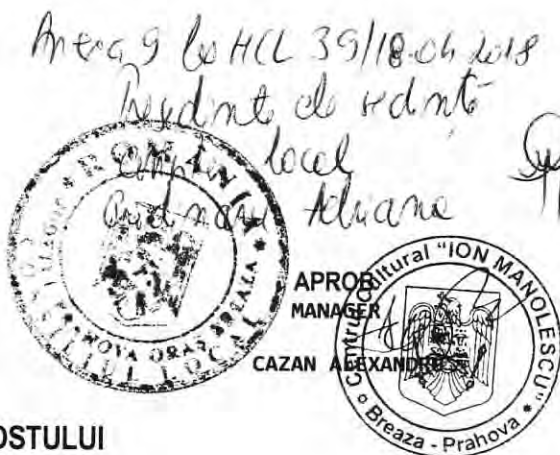 Anexa 9 la HCL 39/18.04.2018
Președinte de ședință
local
Adriana
ROMANIA
CONSILIUL LOCAL
PRAHOVA ORAS BREAZA
APROB
MANAGER
CAZAN ALEXANDRU
Centrul Cultural "ION MANOLESCU"
Breaza - Prahova
OSTULUI